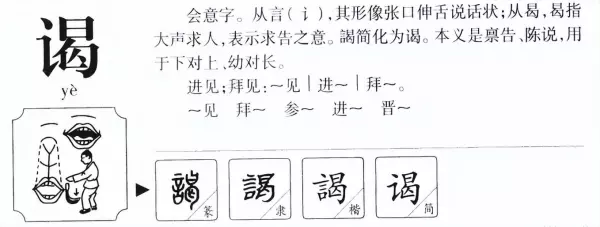 谒
yè
会意字。从言(讠),其形像张口伸舌说话状;从曷,曷指
大声求人,表示求告之意。謁简化为谒。本义是禀告、陈说,用
于下对上、幼对长。
进见;拜见:~见|进~|拜~。
~见 拜~ 参~ 进~ 晋~
謁 篆
謁 隶
謁 楷
谒 简